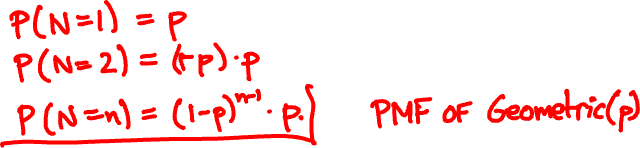 P(N=1) = p
P(N=2) = (1-p)·p
P(N=n) = (1-p)^{n-1} · p. PMF OF Geometric(p)